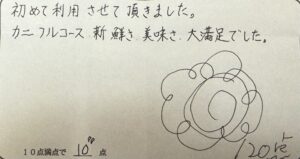 初めて利用させて頂きました。
カニフルコース 新鮮さ、美味さ、大満足でした。
10点満点で 10 点
120点